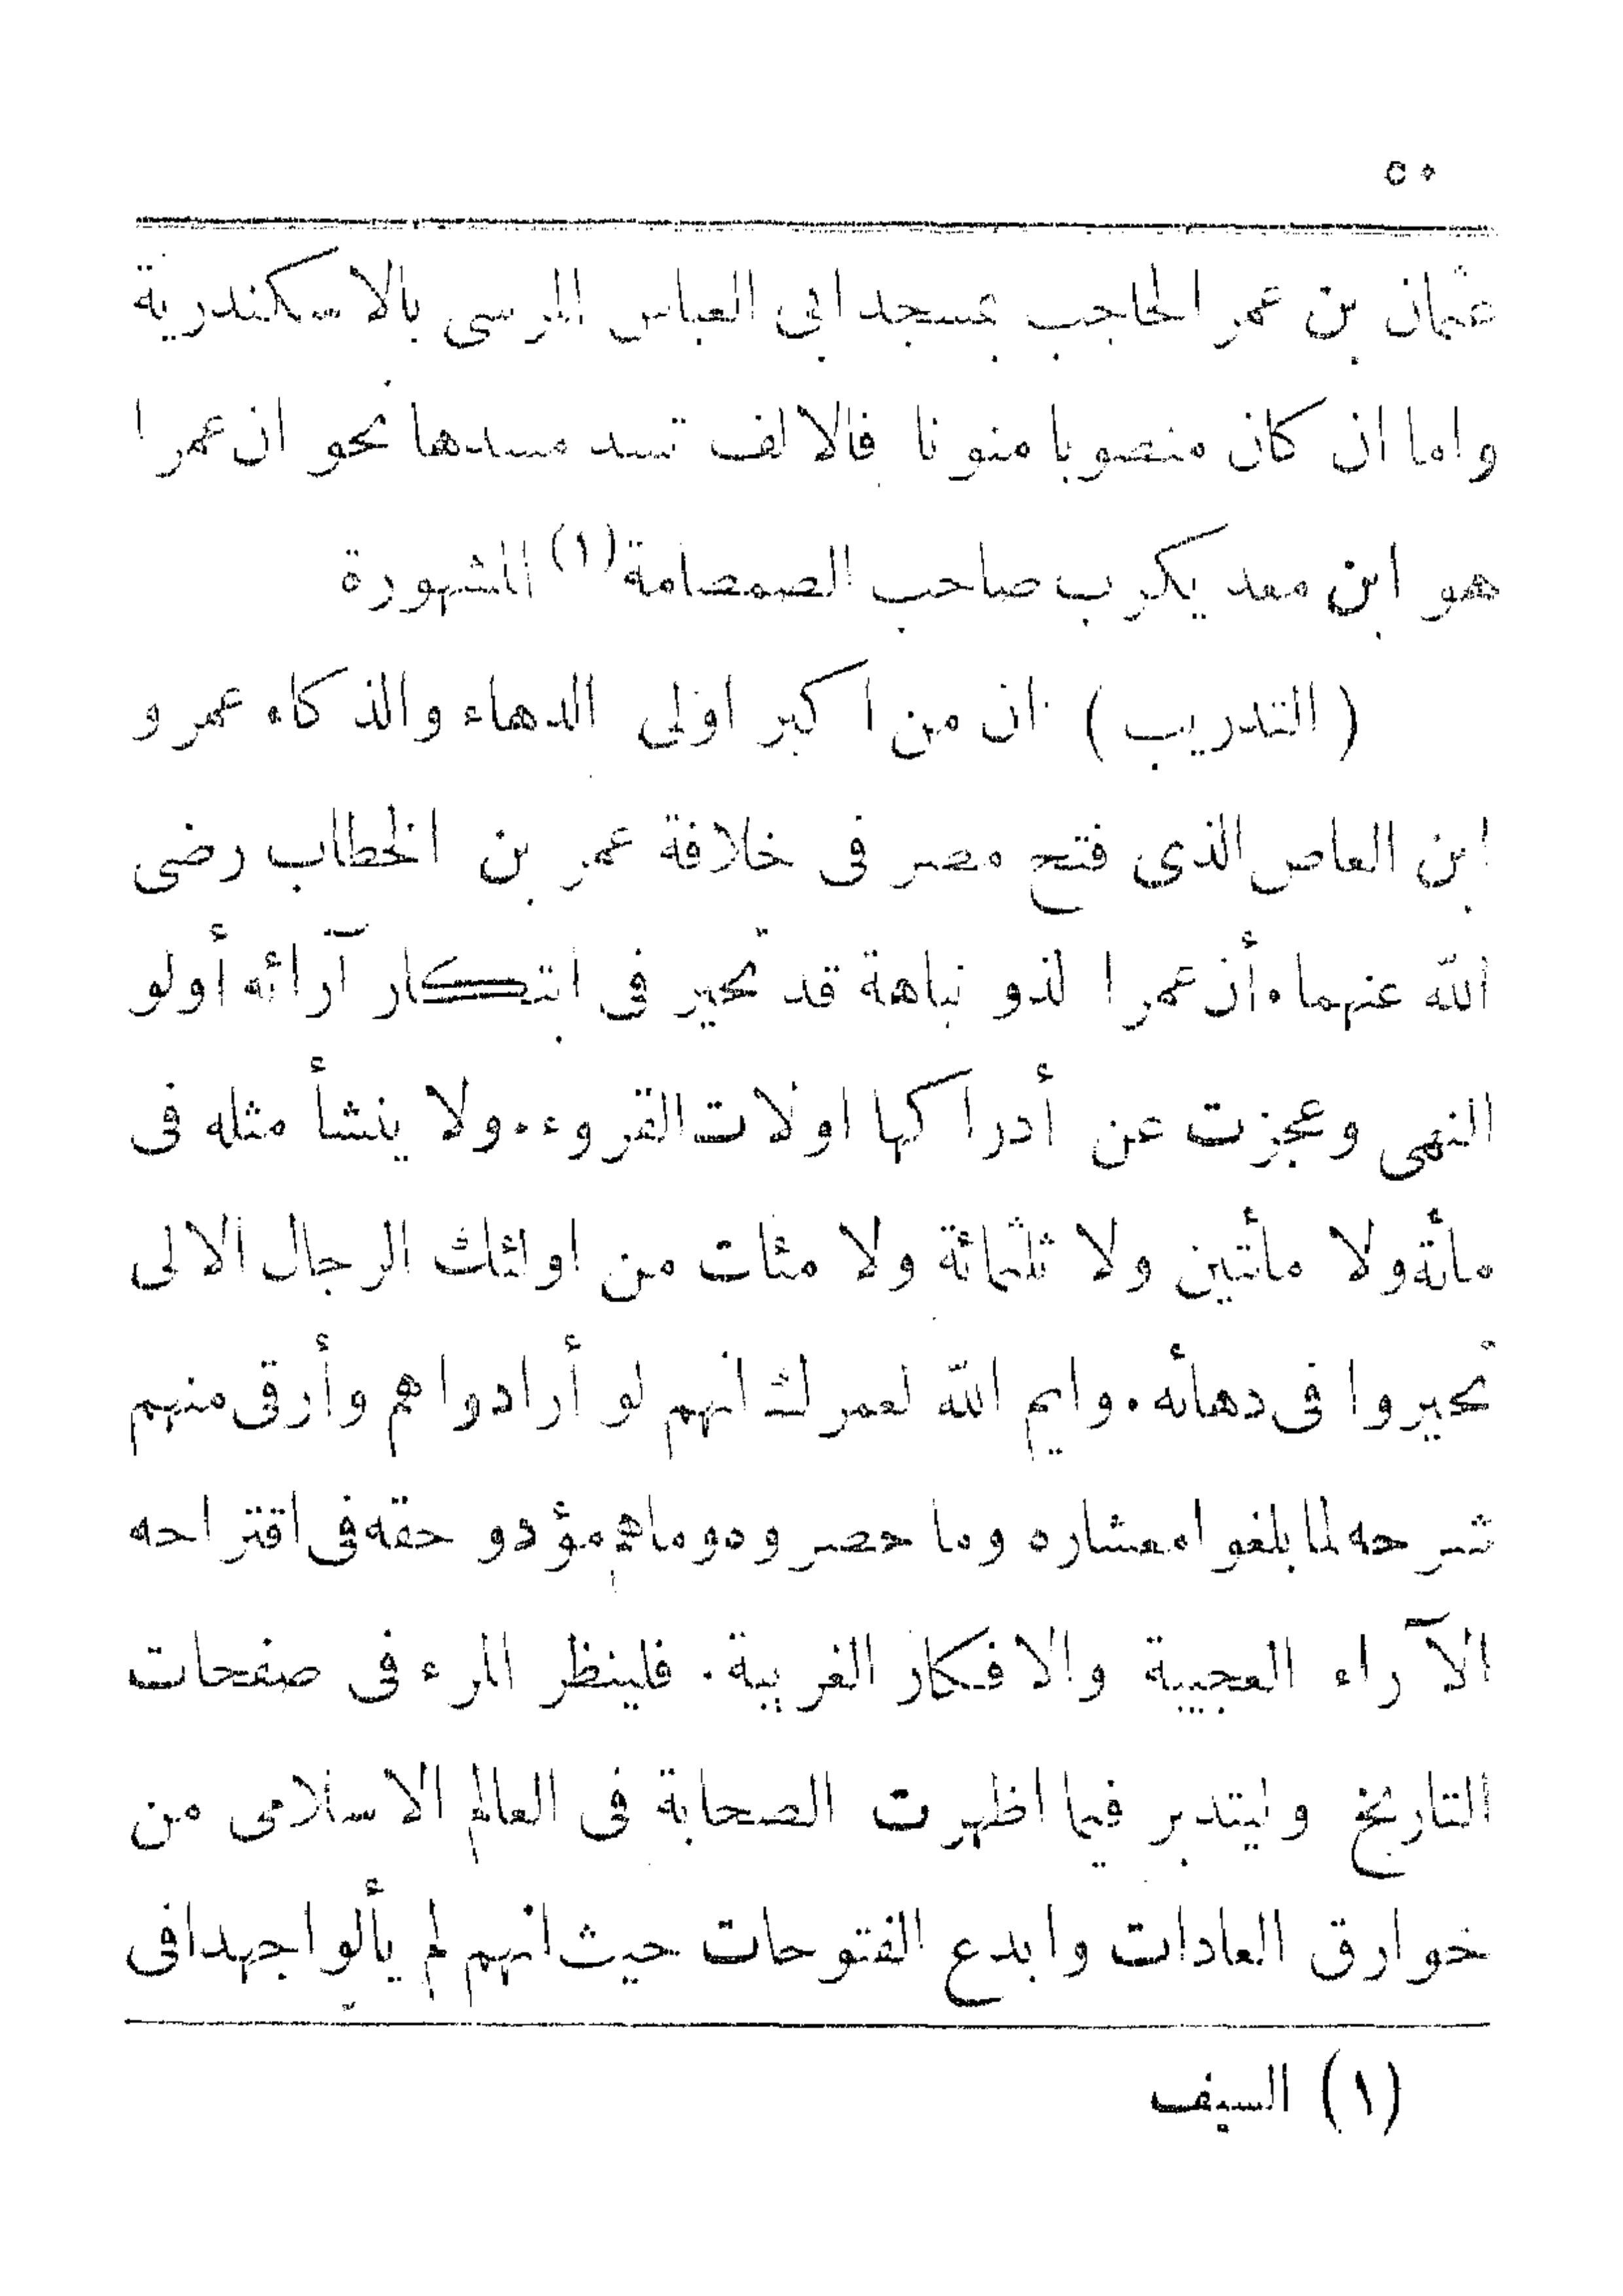 ٥٠
عثمان بن عمر الحاجب بمسجد ابى العباس المرسى بالاسكندرية
واما ان كان منصوبا منونا فالالف تسد مسدها نحو ان عمرا
هو ابن معد يكرب صاحب الصمصامة (١) المشهورة
( التدريب ) ان من اكبر اولى الدهاء والذكاء عمرو
ابن العاص الذى فتح مصر فى خلافة عمر بن الخطاب رضى
الله عنهما. أن عمرا لذو نباهة قد تحير فى ابتكار آرائه أولو
النهى وعجزت عن أدراكها اولات القروء. ولا ينشأ مثله فى
مأة ولا مأتين ولا ثلثمائة ولا مئات من اولئك الرجال الالى
تحيروا فى دهائه. وايم الله لعمرك انهم لو أرادوا هم وأرقى منهم
شرحه لما بلغوا معشاره وما حصروه وماهم مؤدو حقه فى اقتراحه
الآراء العجيبة والافكار الغريبة. فلينظر المرء فى صفحات
التاريخ وليتدبر فيما اظهرت الصحابة فى العالم الاسلامى من
خوارق العادات وابدع الفتوحات حيث انهم لم يألوا جهدا فى
(١) السيف